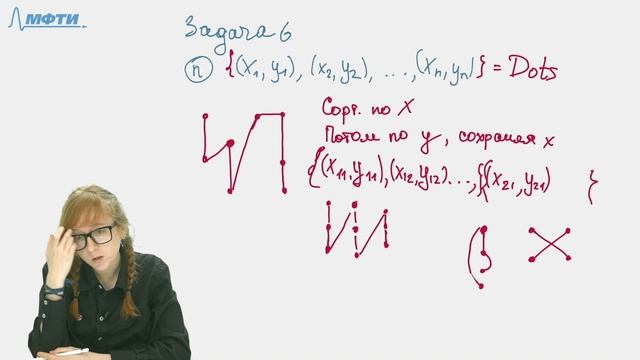 МФТИ
Задача 6
n {(x₁, y₁), (x₂, y₂), ..., (xₙ, yₙ)} = Dots
Сорт. по X
Потом по y, сохраняя x
{(x₁₁, y₁₁), (x₁₂, y₁₂)..., {(x₂₁, y₂₁) }